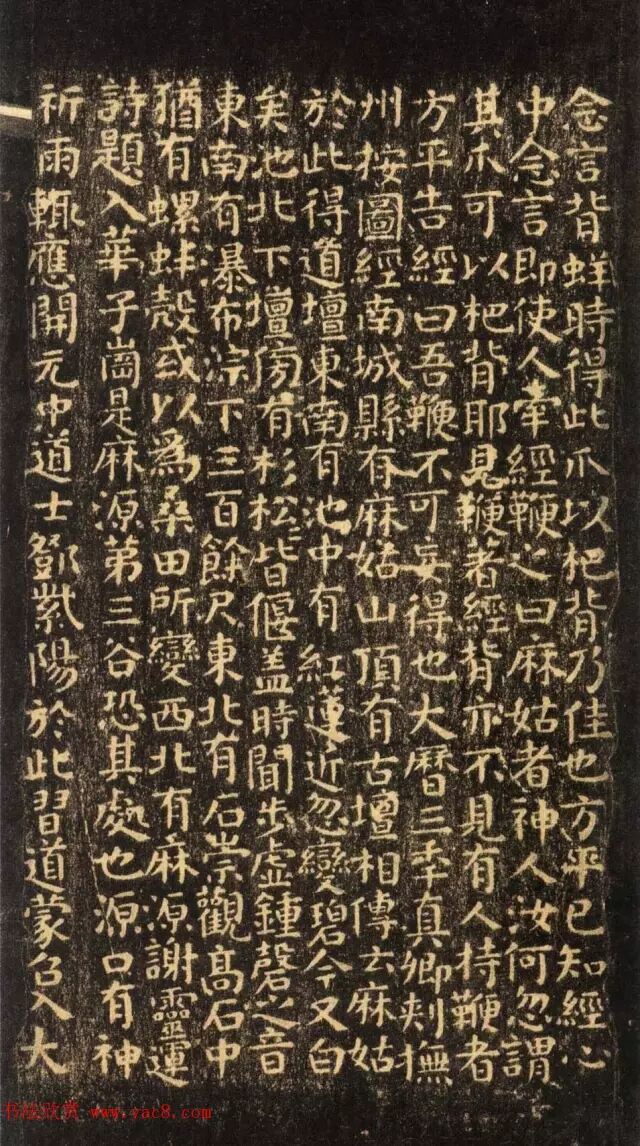 念言背蛘時得此爪以杷背乃佳也方平已知經心
中念言即使人牽經鞭之曰麻姑者神人汝何忽謂
其爪可以杷背耶見鞭著經背亦不見有人持鞭者
方平告經曰吾鞭不可妄得也大曆三秊真卿刾撫
州按圖經南城縣有麻姑山頂有古壇相傳云麻姑
於此得道壇東南有池中有紅蓮近忽變碧今又白
矣池北下壇傍有杉松皆偃盖時聞步虛鍾磬之音
東南有瀑布淙下三百餘尺東北有石崇觀高石中
猶有螺蚌殻或以為桑田所變西北有麻源謝靈運
詩題入華子崗是麻源第三谷恐其處也源口有神
祈雨輒應開元中道士鄧紫陽於此習道蒙召入大
书法欣赏 www.yac8.com